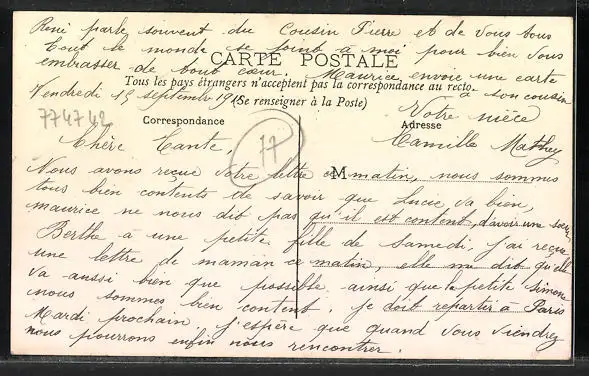 René parle souvent du Cousin Pierre et de vous tous
Tout le monde se joint à moi pour bien vous
embrasser de tout cœur. Maurice envoie une carte
à son cousin
CARTE POSTALE
Tous les pays étrangers n'acceptent pas la correspondance au recto.
(Se renseigner à la Poste)
Vendredi 15 septembre
Votre nièce
Camille Mathey
774742
77
Correspondance
Adresse
M
Chère Tante,
Nous avons reçue votre lettre ce matin, nous sommes
tous bien contents de savoir que Lucie va bien,
maurice ne nous dit pas qu'il est content, d'avoir une sœur
Berthe a une petite fille de Samedi, j'ai reçue
une lettre de maman ce matin, elle me dit qu'elle
va aussi bien que possible ainsi que la petite Simone
nous sommes bien content. Je doit repartir à Paris
Mardi prochain, j'espère que quand vous viendrez
nous pourrons enfin nous rencontrer.